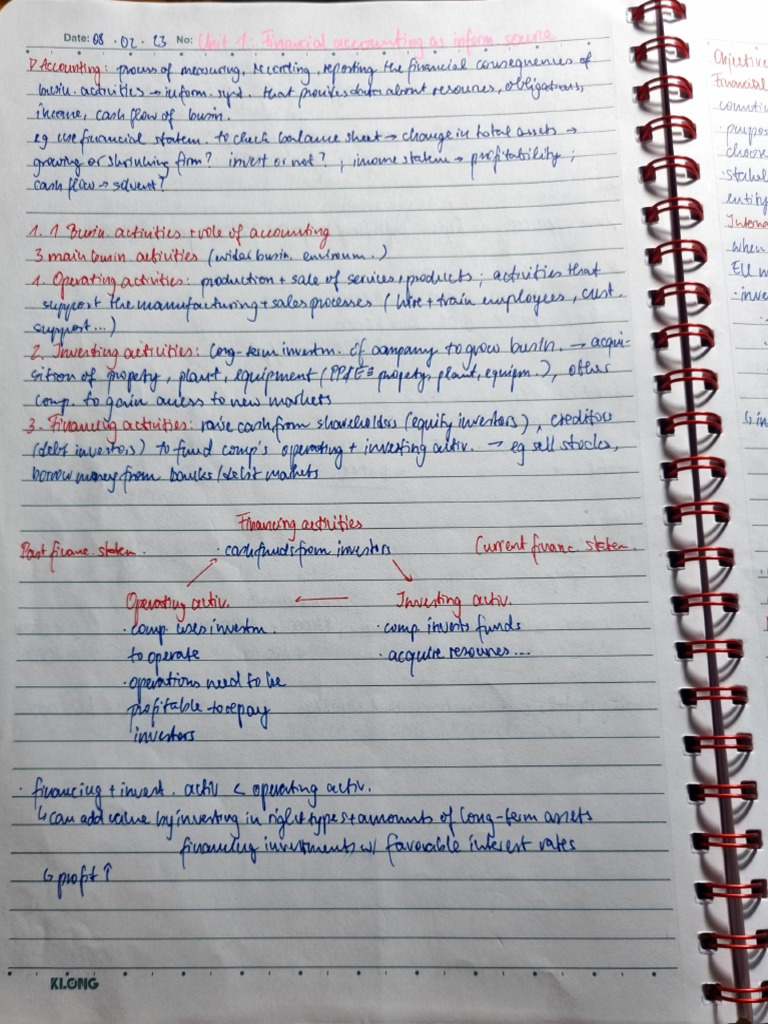 Date: 08 . 02 . 23 No: Unit 1: Financial accounting as inform source
Accounting: process of measuring, recording, reporting the financial consequences of
busin. activities → inform. syst. that provides data about resources, obligations,
income, cash flow of busin.
eg use financial statem. to check balance sheet → change in total assets →
growing or shrinking firm? invest or not? , income statem → profitability ;
cash flow → solvent?
1. 1 Busin activities + role of accounting
3 main busin activities (widas busin. environm.)
1. Operating activities: production + sale of services, products ; activities that
support the manufacturing + sales processes ( hire + train employees, cust.
support...)
2. Investing activities: long-term investm. of company to grow busin. → acqui-
sition of propety, plant, equipment (PP&E ≙ propety, plant, equipm.), other
comp. to gain access to new markets
3. Financing activities: raise cash from shareholders (equity investors), creditors
(debt investors) to fund comp's operating + investing activ. → eg sell stocks,
borrow money from banks/debt markets
Financing activities
Past financ. statem. · cash funds from investors Current financ. statem.
Operating activ. ← Investing activ.
· comp. uses investm. · comp invests funds
to operate · acquire resources ...
· operations need to be
profitable to repay
investors
· financing + invest. activ < operating activ.
↳ can add value by investing in right types + amounts of long-term assets
financing investments w/ favorable interest rates
↳ profit ↑
KLONG
Objective
Financial
purpos
choos
stakeh
entity
Interna
when
EU m
· inves
↳ in